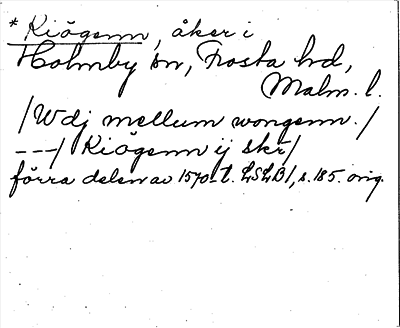 * Kiögenn, åker i
Holmby sn, Frosta hd,
Malm. l.
/Wdj mellum wongenn./
---/ Kiögenn ij skr/
förra delen av 1570-t. LSLB1, s. 185. orig.